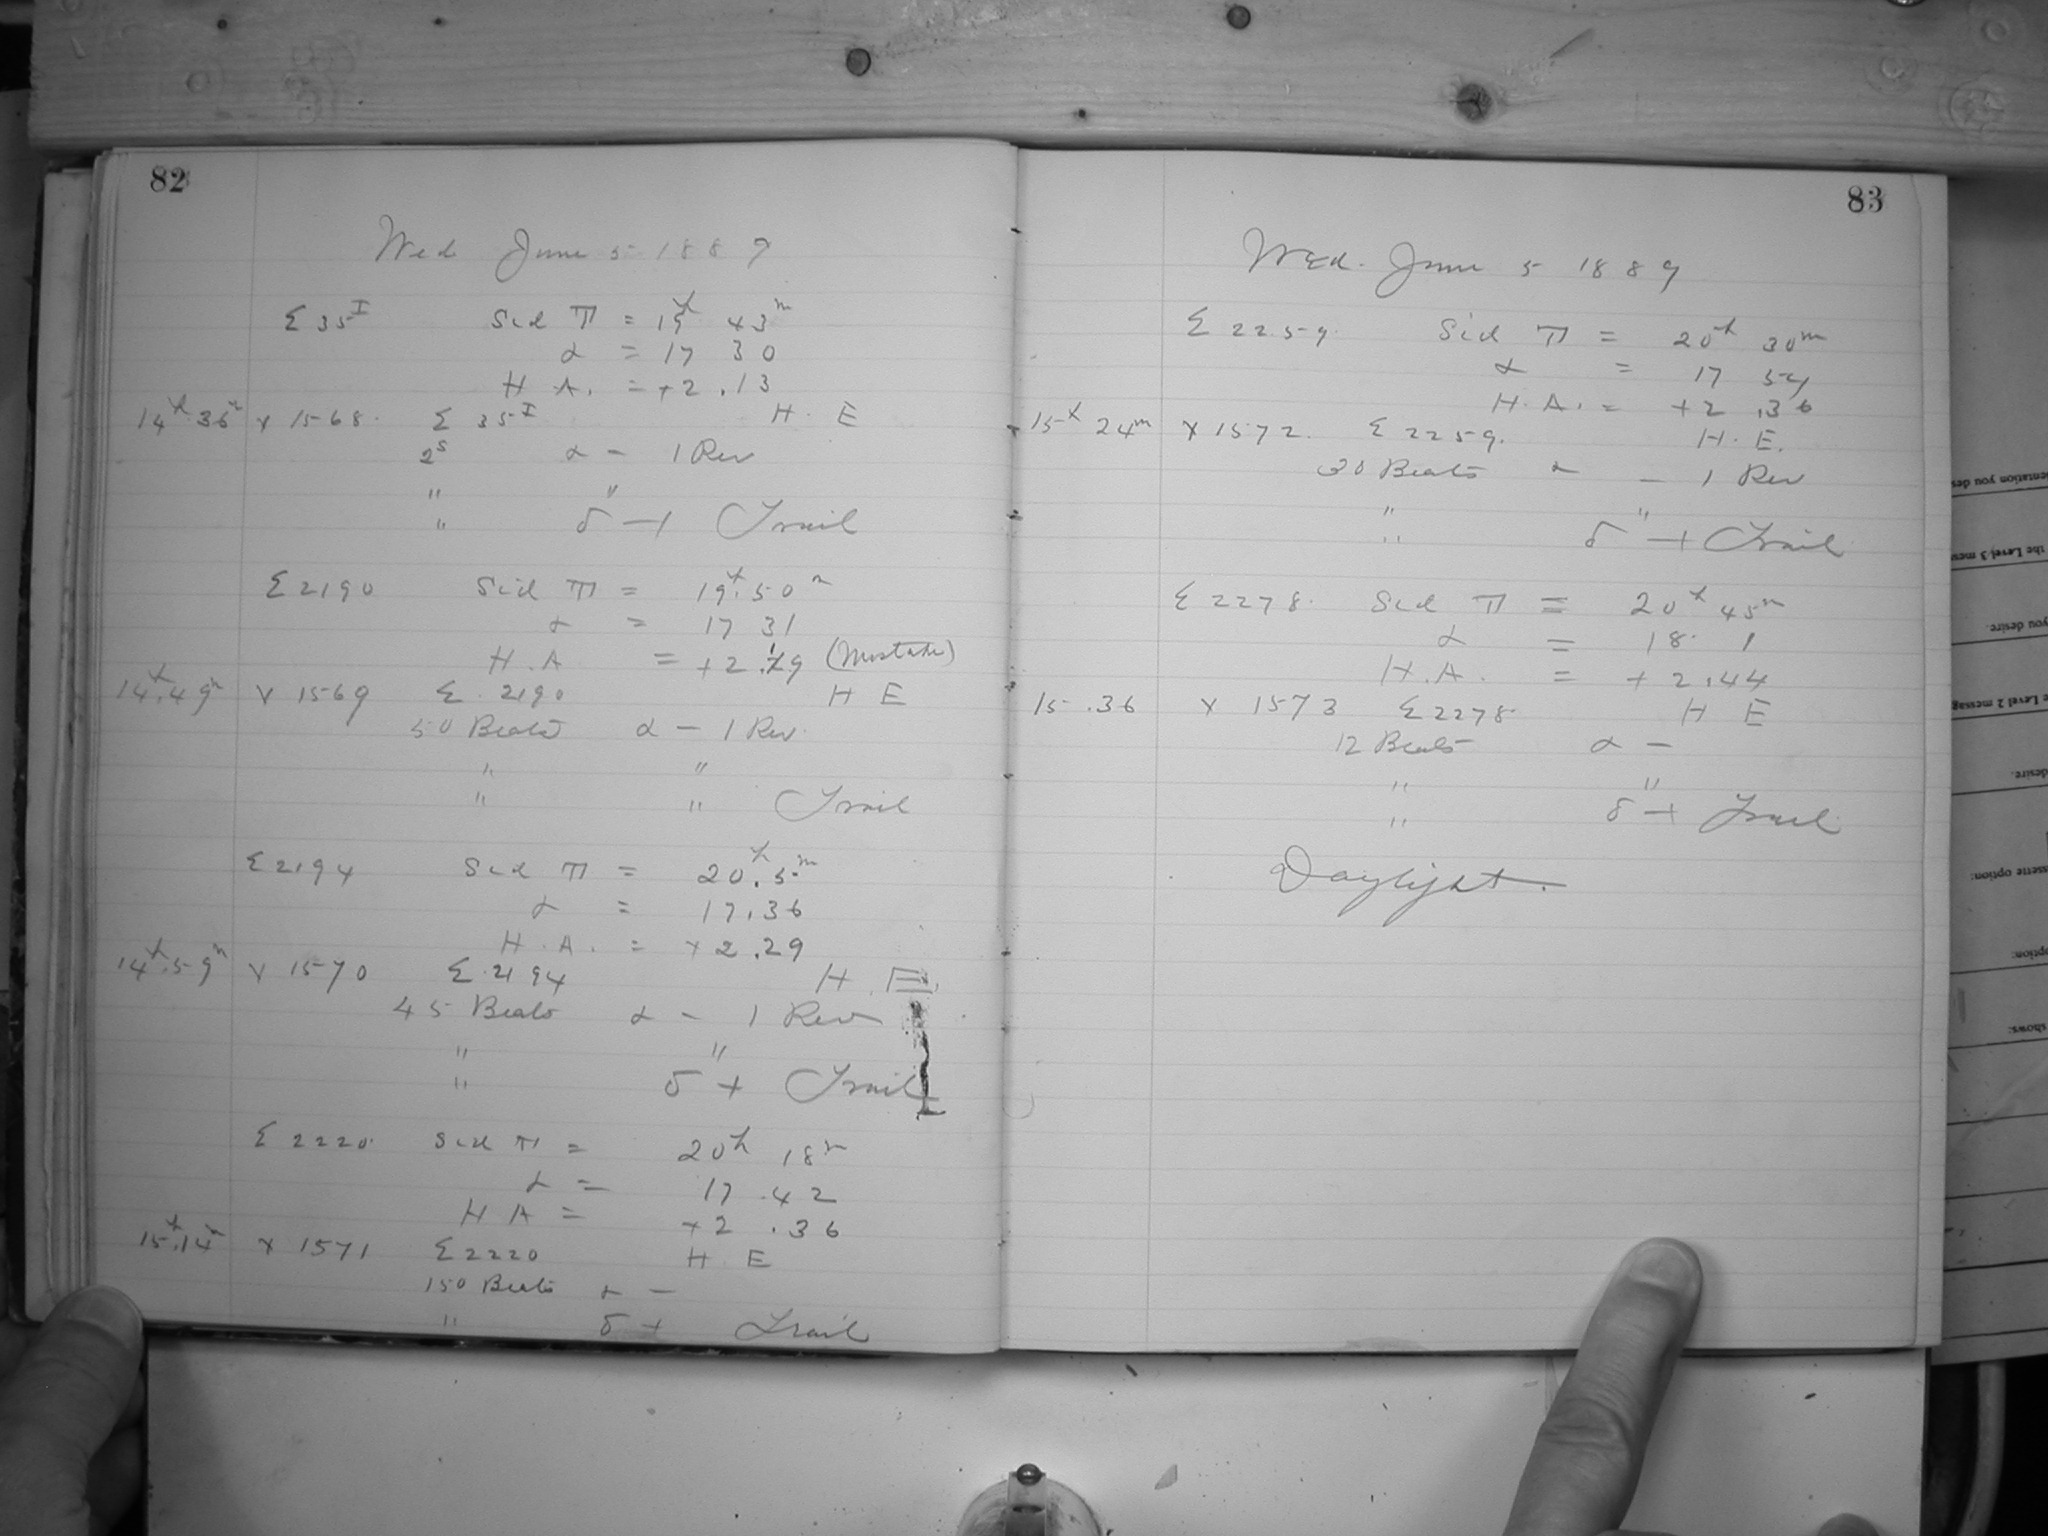 82
Wed June 5 1889
Σ 35^I Sid T = 19^h 43^m
α = 17 30
H. A. = +2.13
14^h.36^m × 1568. Σ 35^I H. E
2^s α - 1 Rev
" "
" δ + Trail
Σ 2190 Sid T = 19^h.50^m
α = 17 31
H. A = +2.19 (Mistake)
14^h.49^m × 1569 Σ. 2190 H E
50 Beats α - 1 Rev.
" "
" " Trail
Σ 2194 Sid T = 20^h.5^m
α = 17.36
H. A. = +2.29
14^h.59^m × 1570 Σ. 2194 H. E.
45 Beats α - 1 Rev
" "
" δ + Trail
Σ 2220. Sid T = 20^h 18^m
α = 17.42
H A = +2.36
15^h.14^m × 1571 Σ 2220 H E
150 Beats α -
" δ + Trail
83
Wed. June 5 1889
Σ 2259. Sid T = 20^h 30^m
α = 17 54
H. A. = +2.36
15^h 24^m × 1572. Σ 2259. H. E.
30 Beats α - 1 Rev
" "
" δ + Trail
Σ 2278. Sid T = 20^h 45^m
α = 18. 1
H. A. = +2.44
15.36 × 1573 Σ 2278 H E
12 Beats α -
" "
" δ + Trail
Daylight.
entation you des
the Level 3 mess
you desire.
e Level 2 messag
desire.
ssette option:
option:
shows: